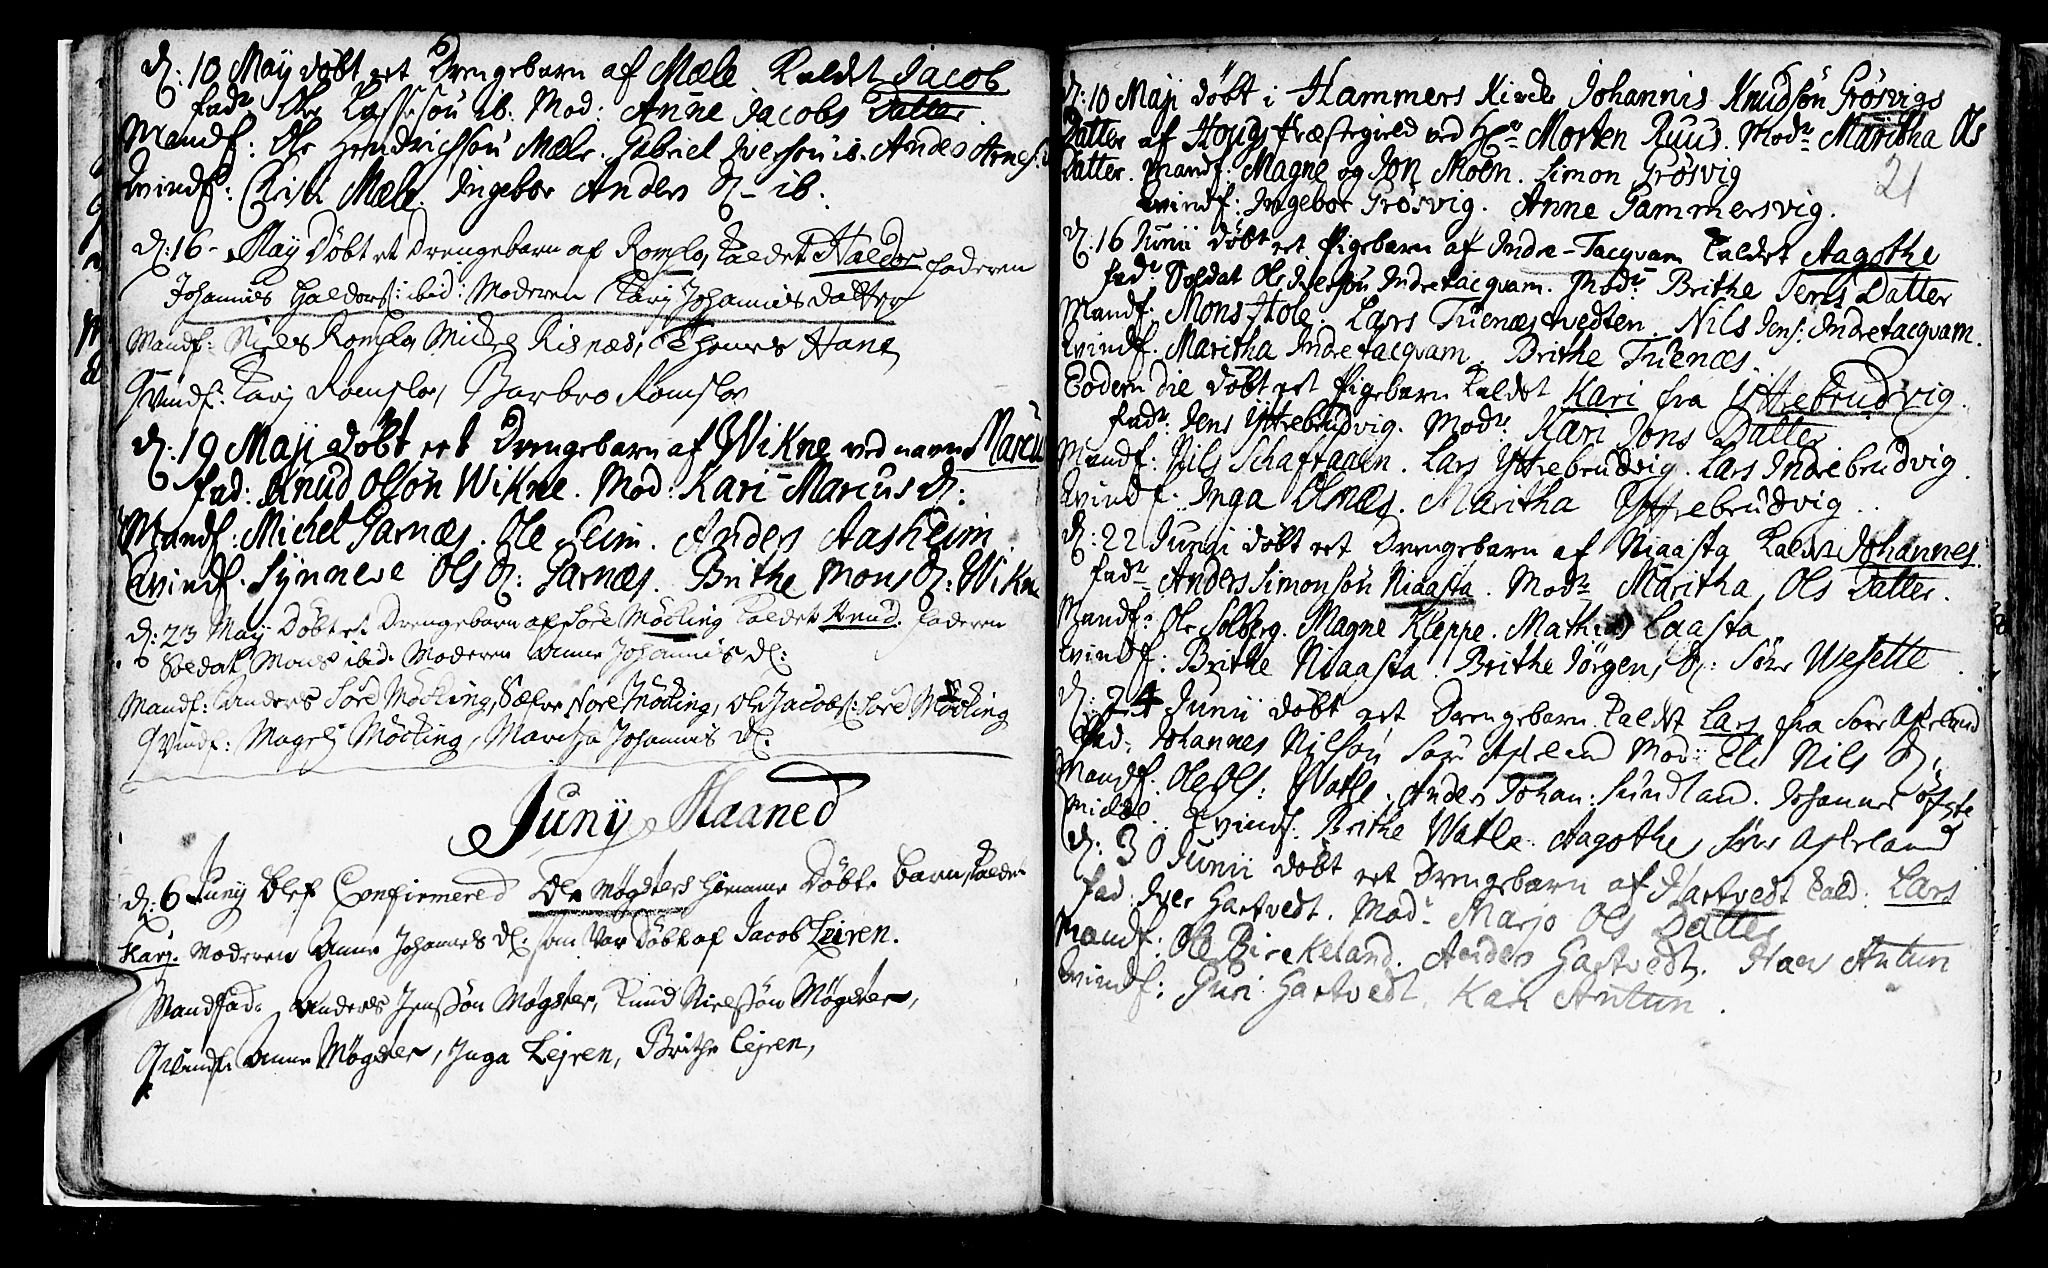 d: 10 Maij döbt eet Drengebarn af Mæle Kaldet Jacob
fadr Ole Lassesøn ib. Mod: Anne Jacobs Datter.
Mandf: Ole Hendrichsøn Mæle. Gabriel Iversøn ib. Andes Arnes:
Qvindf: Christi Mæle. Ingebor Anders D- ib.
d: 16- Maij Döbt et Drengebarn af Romslo, kaldet Haldor faderen
Johannes Haldors: ibid: Moderen Karj Johannis datter
Mandf: Niels Romslo, Michel Risnæs, Thomes Hane
Qvindf: Karj Romslo, Barbro Romslo
d: 19 Maji döbt eet Drengebarn af Wikne ved navn Marcu
fad: Knud Olsøn Wikne. Mod: Kari Marcus D:
Mandf: Michel Garnæs. Ole Seim. Anders Aasheim.
Qvindf. Synneve Ols D: Garnæs. Brithe Mons D: Wikn
d: 23 Maij Döbt et Drengebarn af Söre Möcling kaldet Knud. faderen
Soldat Mons ibid. Moderen Anne Johannis D:
Mandf: Anders Söre Möcling, Nore Möcling, Ole Jacobs: Söre Möcling
Qvindf: Mageli Möcling, Maritha Johannis D:
Junij Maaned
d: 6 Junij blef Confirmered Ole Møgsters hiemme Döbte barn, kaldet
Karj. Moderen Anne Johannes D: som var döbt af Jacob Leiren.
Mandfad: Anderes Jenssøn Møgster, Knud Nielssøn Møgster,
Qvindf: Anne Møgster, Inga Lejren, Brithe Lejren,
d: 10 Maji döbt i Hammers Kirche Johannis Knudsøn Grøsvigs
Datter af Hougs Præstegield ved Hr Morten Ruus. Modr Maritha Ols
Datter. Mandf: Magne og Jon Moen. Simon Grøsvig
21
Qvindf: Ingebor Grøsvig. Anne Gammersvig.
d. 16 Junii döbt eet Pigebarn af Indre-Tacqvam kaldet Aagothe
fadr Soldat Ole Iversøn Indretacqvam. Modr Brithe Jens Datter
Mandf: Mons Hole. Lars Tuenæs tvedten. Nils Jens: Indretacqvam.
Qvindf. Maritha Indretacqvam. Brithe Tuenæs.
Eodem die döbt eet Pigebarn kaldet Kari fra Yttrebrudvig.
fadr. Jens Yttrebrudvig. Modr: Kari Jons Datter
Mandf: Nils Schaftaaen. Lars Yttrebrudvig. Lars Indrebrudvig
Qvindf. Inga Elnæs. Maritha Yttrebrudvig..
d: 22 Junii döbt eet Drengebarn af Niaasta kaldet Johannes.
fadr Anders Simonsøn Niaasta. Modr Maritha Ols Datter.
Mandf: Ole Solberg. Magne Kleppe. Mathias Laasta
Qvindf: Brithe Niaasta. Brithe Jörgens D: Söre Wesette.
d: 24 Junii döbt eet Drengebarn kaldet Lars fra Söre Asseland
fad: Johannes Nilsøn Söre Asseland Mod: Eli Nils D:
Mandf: Ole Ols: Watle. Anders Johan: Sundland. Johannes Öfste
Qvindf. Brithe Watle. Aagothe Söre Asseland
d: 30 Junii döbt eet Drengebarn af Hartvedt kald: Lars
fad: Iver Hartvedt. Modr Marjo Ols Datter
Mandf: Ole Birkeland. Anders Hartvedt. Hans Antun
Qvindf: Guri Hartvedt. Kari Antun.